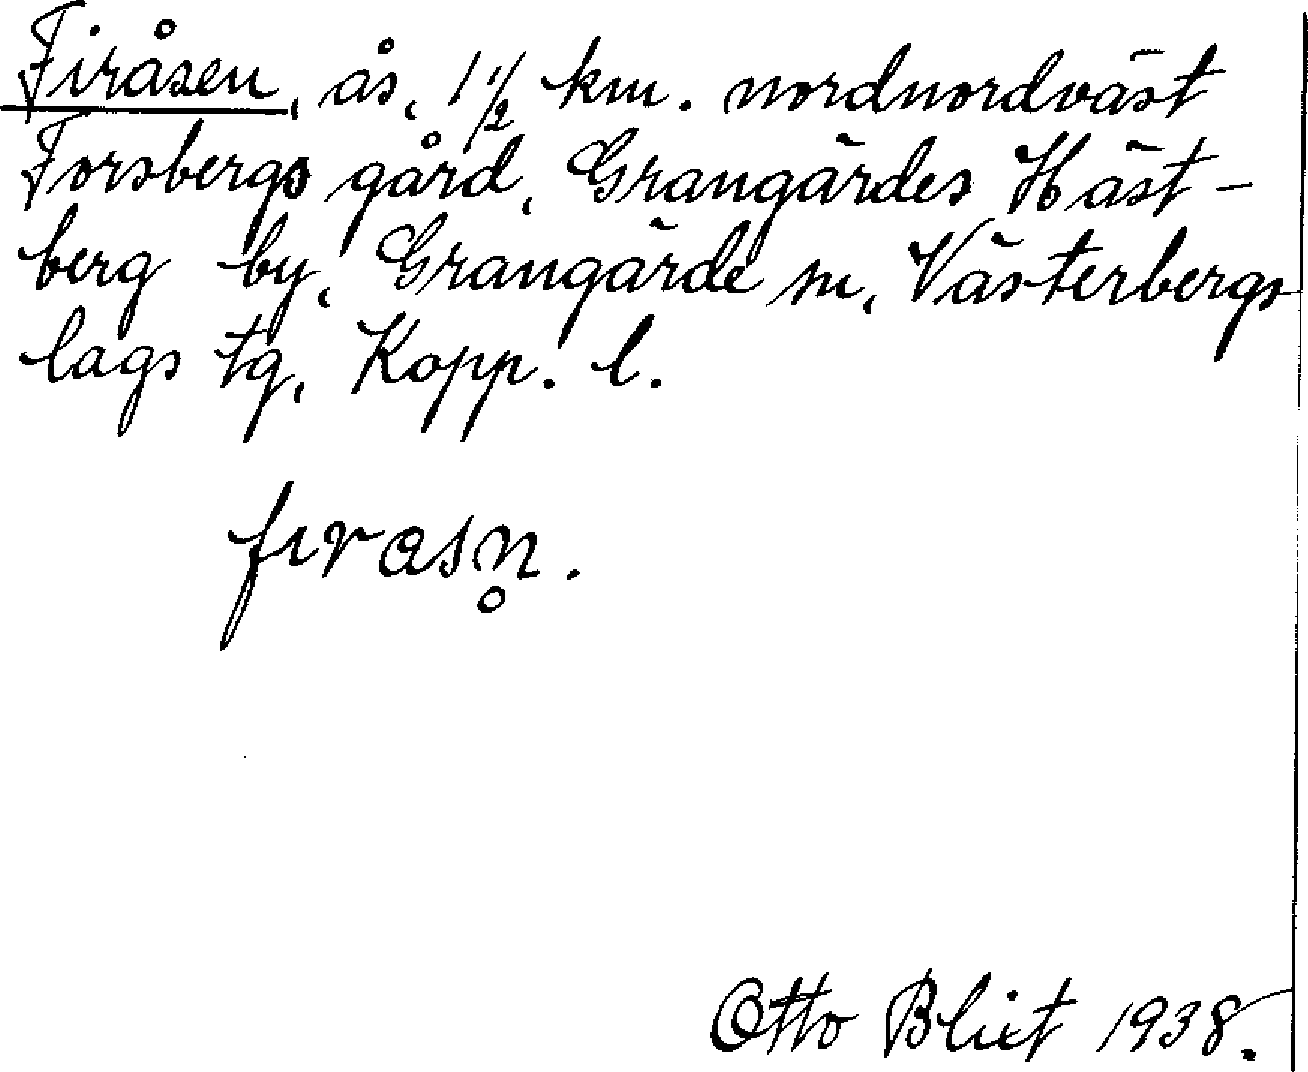 Firåsen, ås, 1 1/2 km. nordnordväst
Forsbergs gård, Grangärdes Häst-
berg by, Grangärde sn, Västerbergs
lags tg, Kopp. l.
fırasn̥.
Otto Blixt 1938.